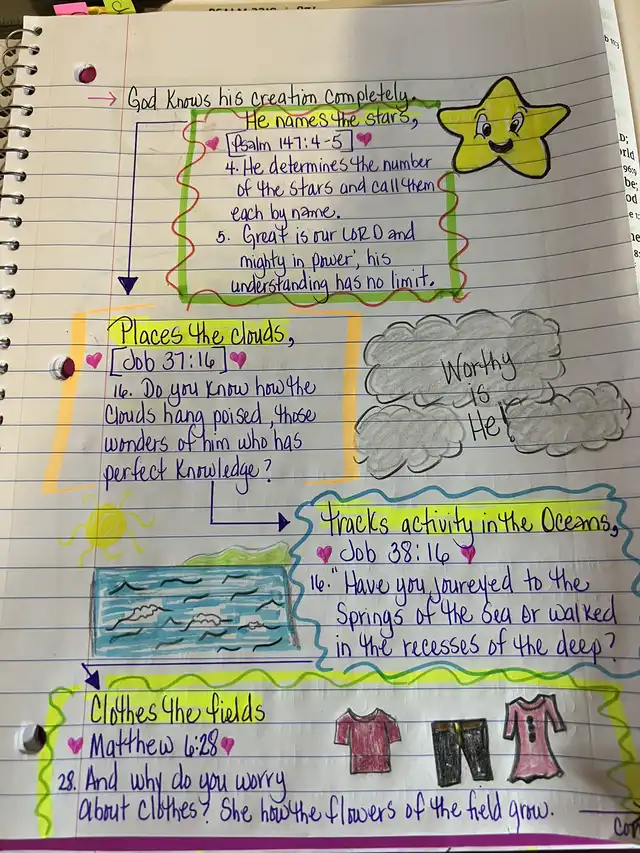 God Knows his creation completely.
He names the stars,
[Psalm 147:4-5]
4. He determines the number
of the stars and call them
each by name.
5. Great is our LORD and
mighty in power; his
understanding has no limit.
Places the clouds,
[Job 37:16]
16. Do you know how the
Clouds hang poised, those
wonders of him who has
perfect Knowledge?
Worthy
is
He!
Tracks activity in the Oceans,
Job 38:16
16. "Have you joureyed to the
Springs of the Sea or walked
in the recesses of the deep?
Clothes the fields
Matthew 6:28
28. And why do you worry
about clothes? She how the flowers of the field grow.